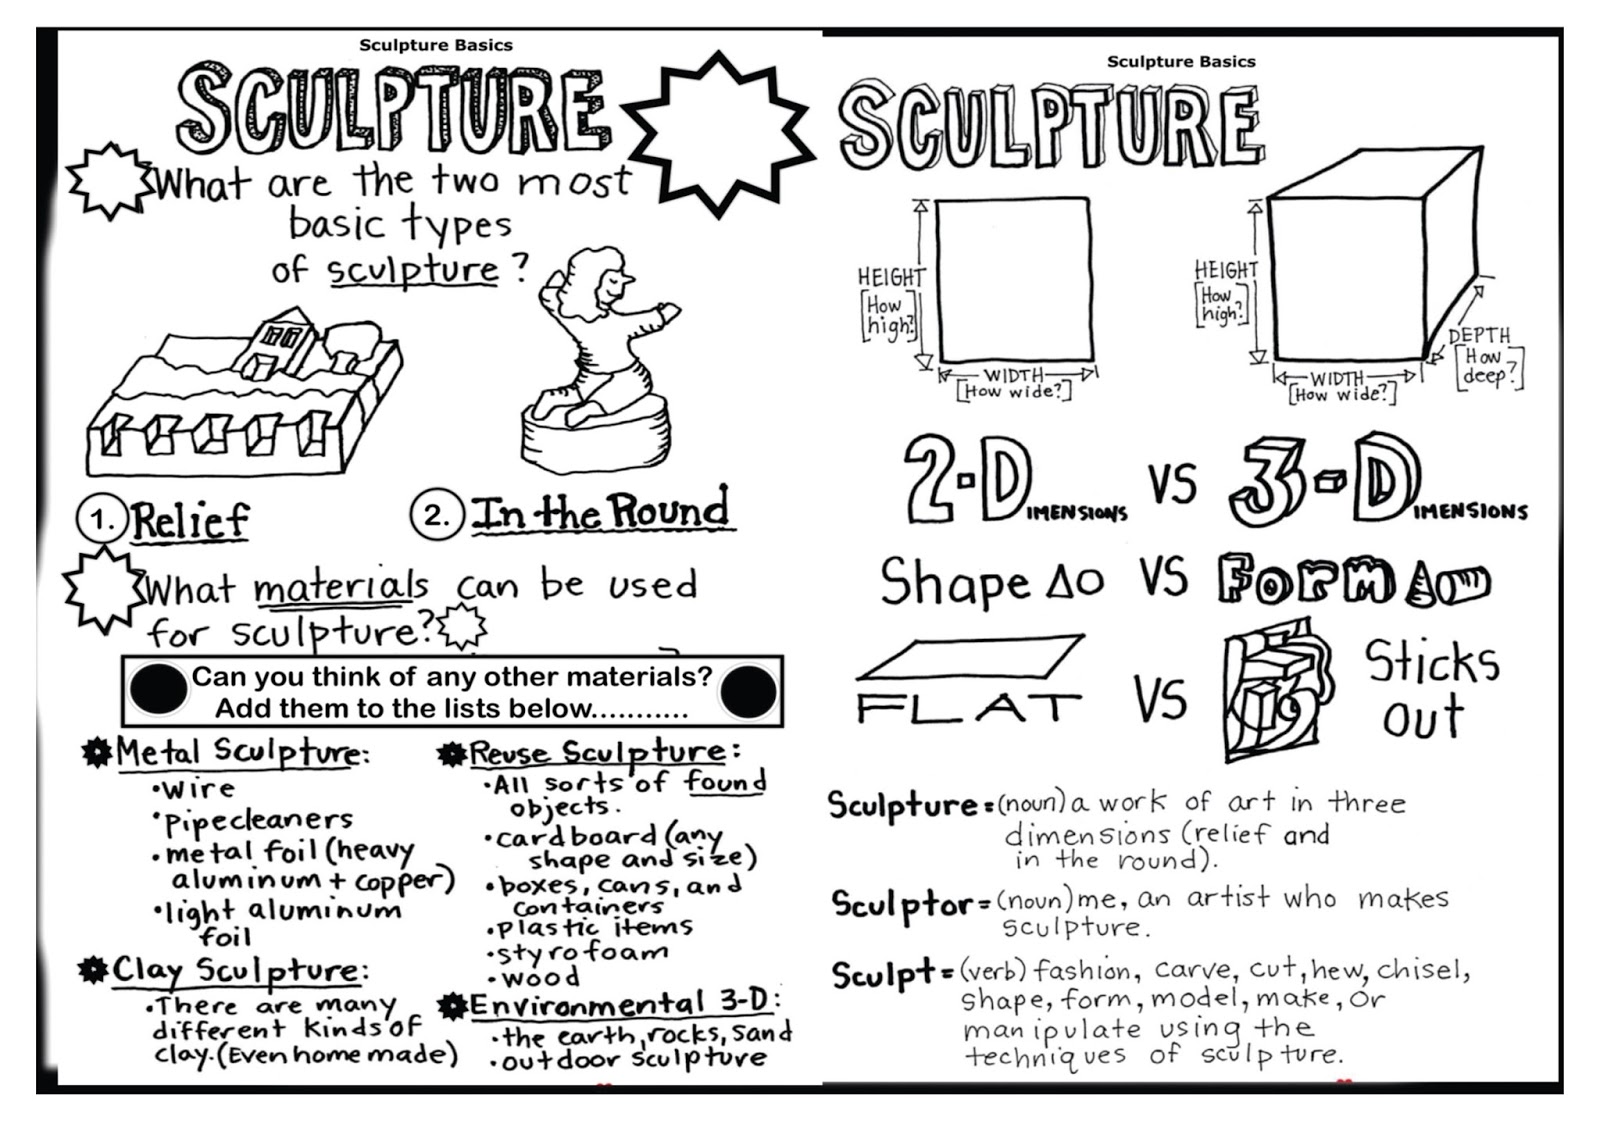 Sculpture Basics
SCULPTURE
What are the two most
basic types
of sculpture?
1. Relief
2. In the Round
What materials can be used
for sculpture?
Can you think of any other materials?
Add them to the lists below...........
Metal Sculpture:
•Wire
•Pipecleaners
•metal foil (heavy
aluminum + copper)
•light aluminum
foil
Clay Sculpture:
•There are many
different kinds of
clay. (Even home made)
Reuse Sculpture:
•All sorts of found
objects.
•cardboard (any
shape and size)
•boxes, cans, and
containers
•plastic items
•styrofoam
•wood
Environmental 3-D:
•the earth, rocks, sand
•outdoor sculpture
Sculpture Basics
SCULPTURE
HEIGHT
[How
high?]
WIDTH
[How wide?]
HEIGHT
[How
high?]
WIDTH
[How wide?]
DEPTH
[How
deep?]
2-DIMENSIONS VS 3-DIMENSIONS
Shape VS FORM
FLAT VS Sticks
out
Sculpture = (noun) a work of art in three
dimensions (relief and
in the round).
Sculptor = (noun) me, an artist who makes
sculpture.
Sculpt = (verb) fashion, carve, cut, hew, chisel,
shape, form, model, make, or
manipulate using the
techniques of sculpture.